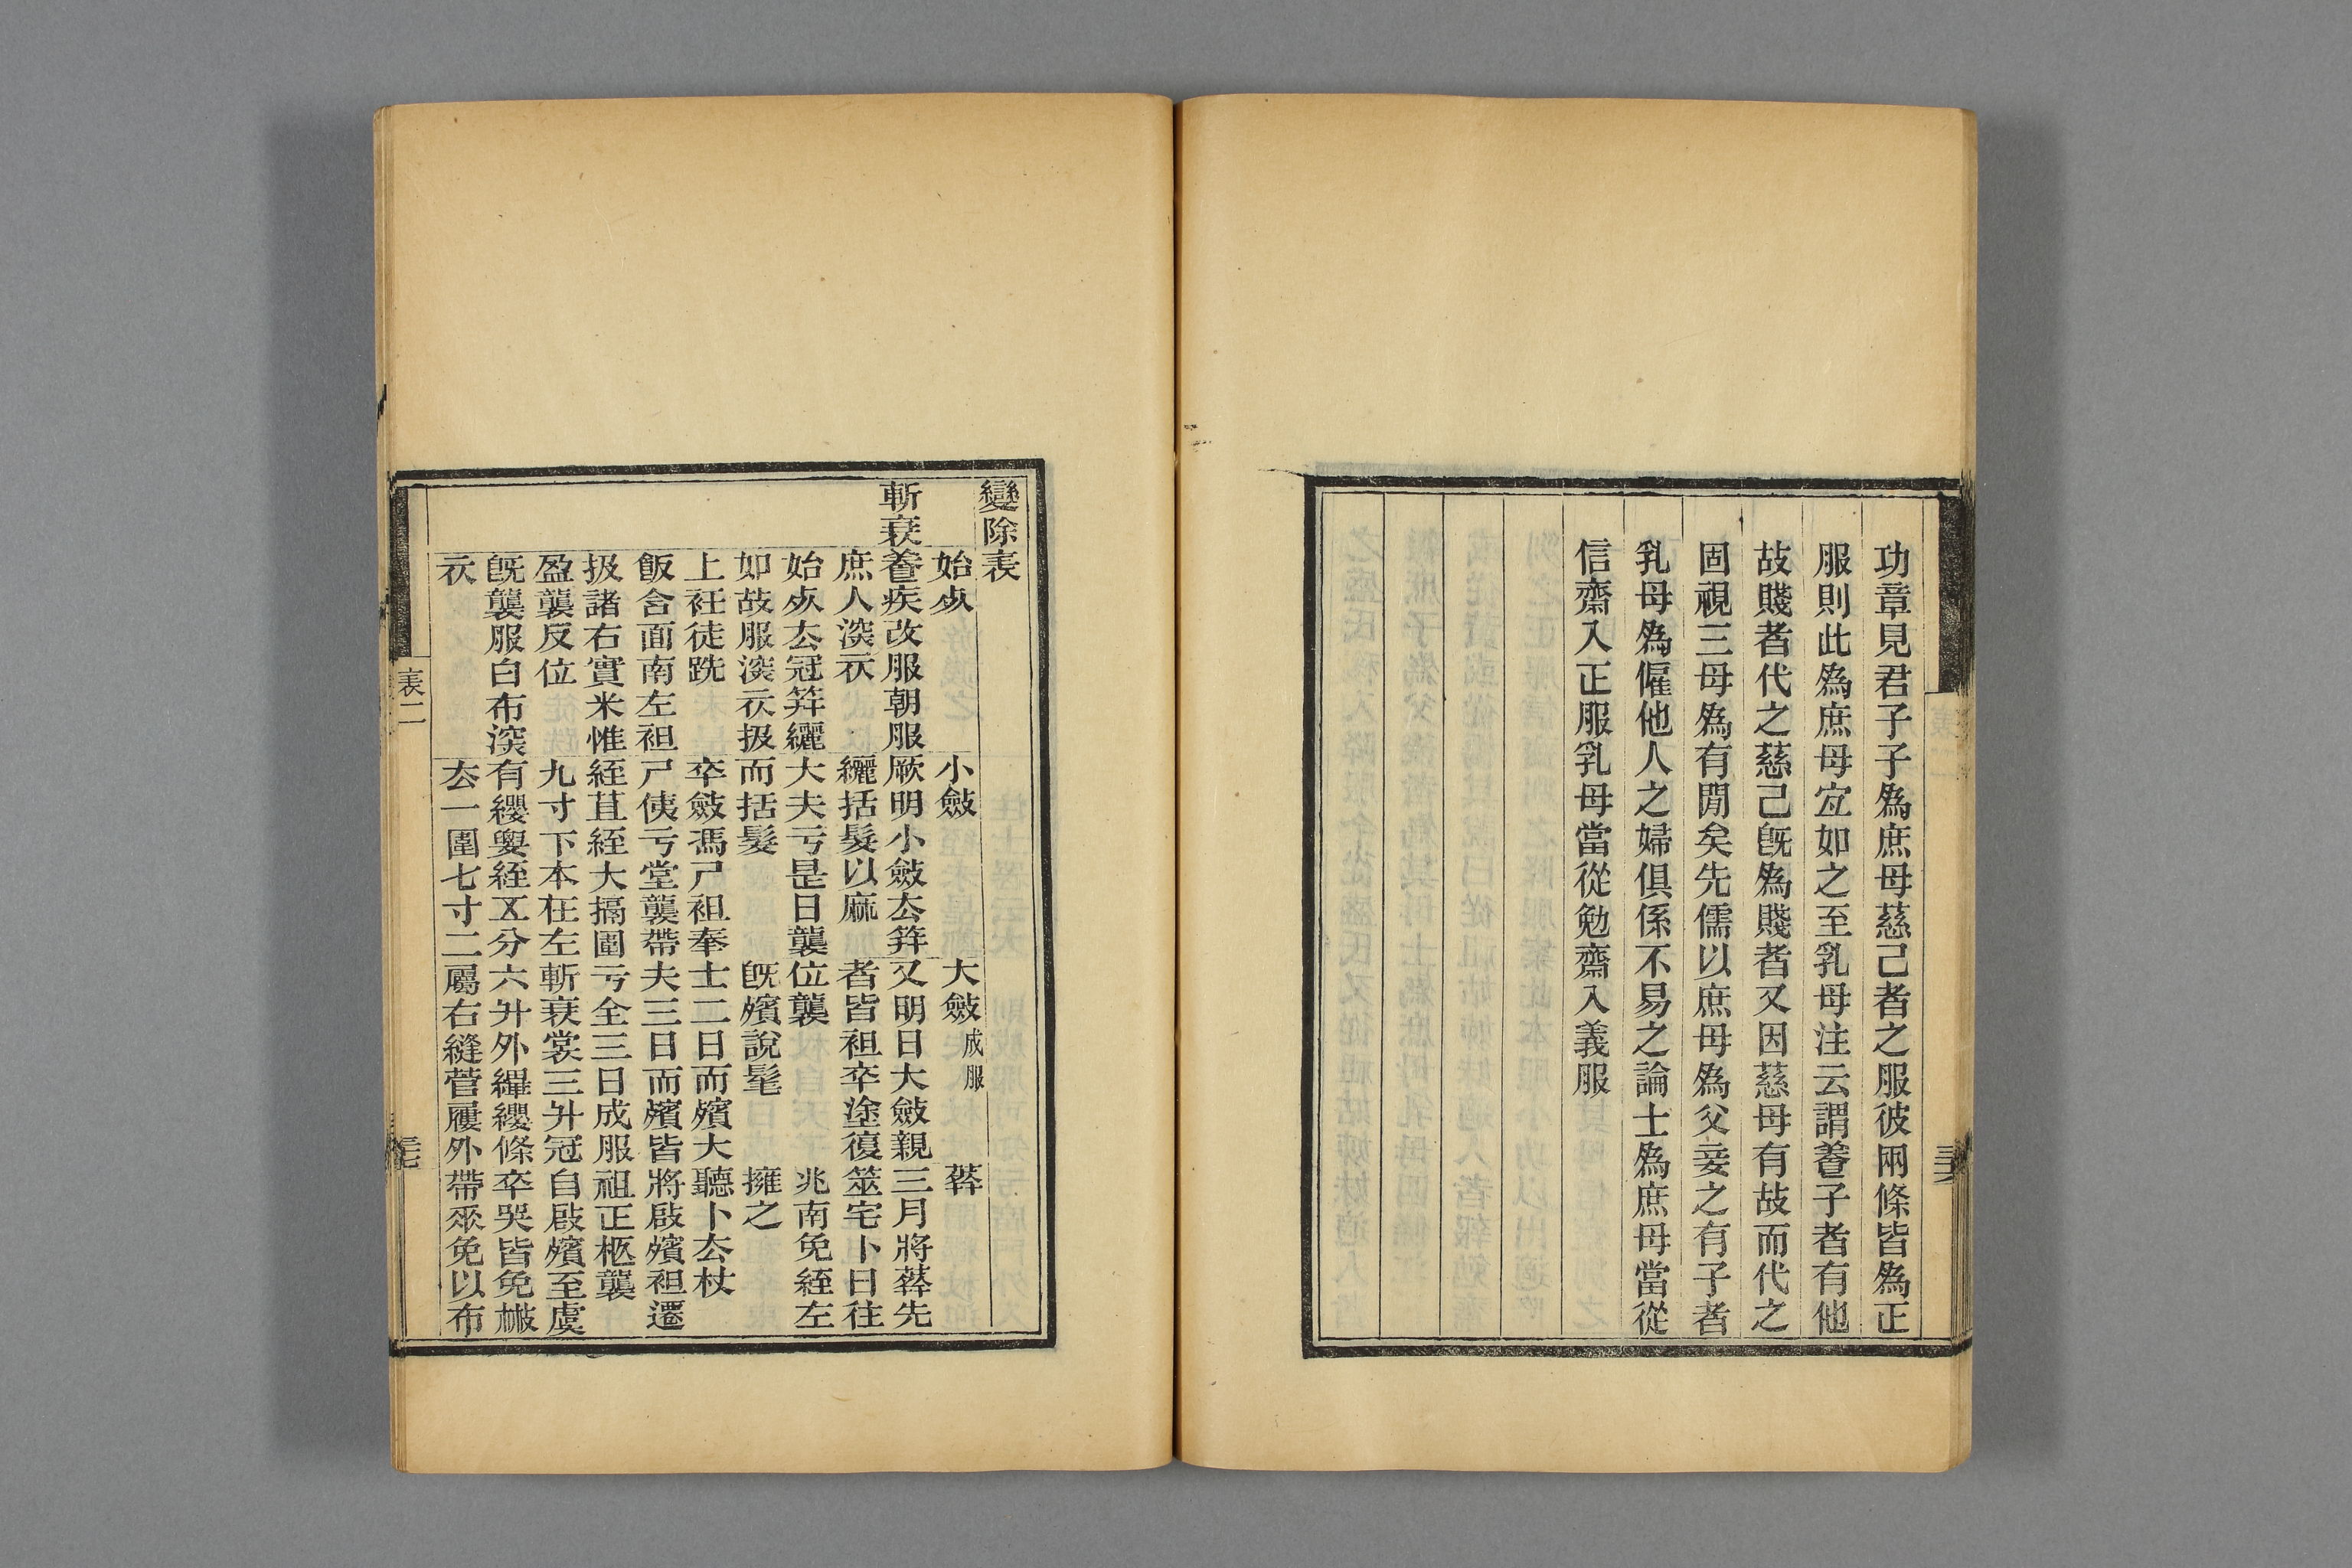 功章見君子子爲庶母慈己者之服彼兩條皆爲正
服則此爲庶母宐如之至乳母注云謂養子者有他
故賤者代之慈己旣爲賤者又因慈母有故而代之
固視三母爲有閒矣先儒以庶母爲父妾之有子者
乳母爲僱他人之婦俱係不易之論士爲庶母當從
信齋入正服乳母當從勉齋入義服
變除表
始死
小斂
大斂成服
葬
斬衰
養疾改服朝服
庶人深衣
始死去冠筓纚
如故服深衣扱
上衽徒跣
飯含面南左袒
扱諸右實米惟
盈襲反位
旣襲服白布深
衣
厥明小斂去筓
纚括髮以麻
大夫亏是日襲
而括髮
卒斂馮尸袒奉
尸侇亏堂襲帶
絰苴絰大搹圍
九寸下本在左
有纓要絰五分
去一圍七寸二
又明日大斂親
者皆袒卒塗復
位襲
旣殯說髦
士二日而殯大
夫三日而殯皆
亏全三日成服
斬衰裳三升冠
六升外縪纓條
屬右縫菅屨外
三月將葬先
筮宅卜日往
兆南免絰左
擁之
聽卜去杖
將啟殯袒遷
祖正柩襲
自啟殯至虞
卒哭皆免㪔
帶眾免以布
表二
三七